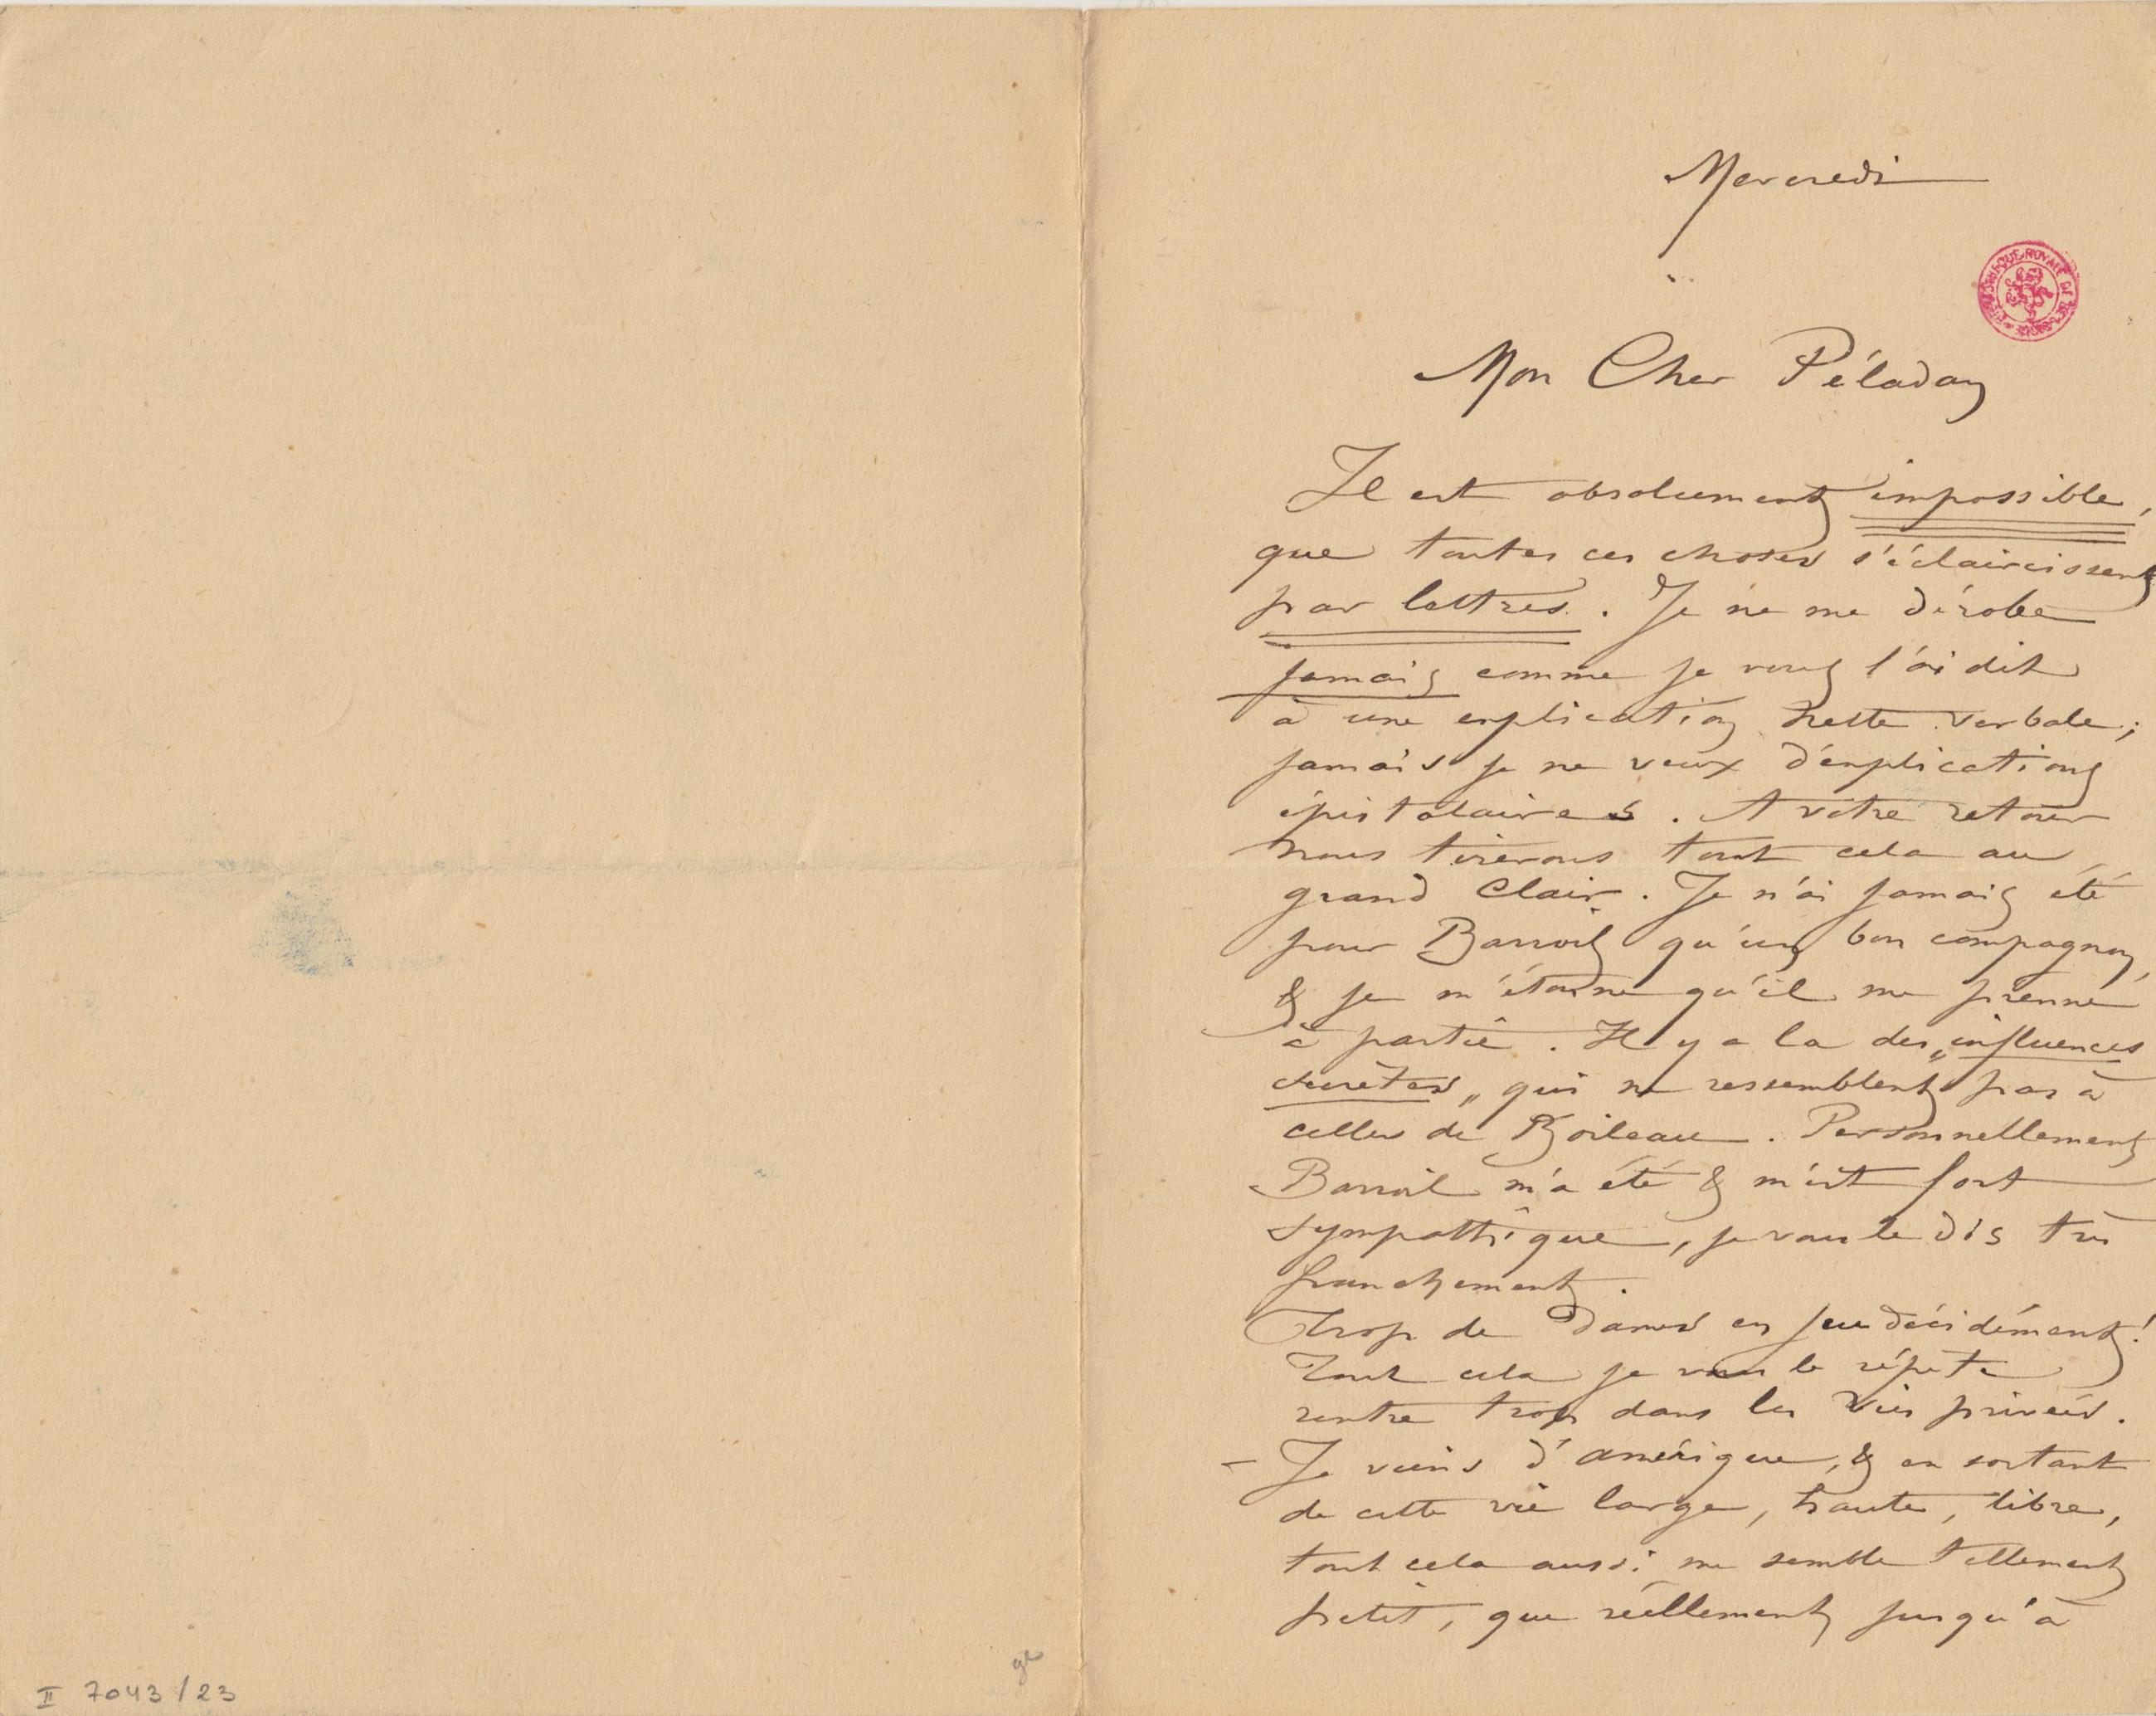 Mercredi
BIBLIOTHEQUE ROYALE DE BELGIQUE
Mon Cher Péladan
Il est absolument impossible,
que toutes ces choses s'éclaircissent
par lettres. Je ne me dérobe
jamais comme je vous l'ai dit
à une explication nette verbale;
jamais je ne veux d'explications
épistolaires. A votre retour
nous tirerons tout cela au
grand Clair. Je n'ai jamais été
pour Barroil qu'un bon compagnon,
& je m'étonne qu'il me prenne
à partie. Il y a la des „influences
secrètes„ qui ne ressemblent pas à
celles de Boileau. Personnellement
Barroil m'a été & m'est fort
sympathique, je vous le dis très
franchement.
Trop de Dames en jeu décidément!
Tout cela je vous le répète
rentre trop dans les vies privées.
- Je viens d'amérique, & en sortant
de cette vie large, haute, libre,
tout cela aussi me semble tellement
petit, que réellement jusqu'à
II 7043/23